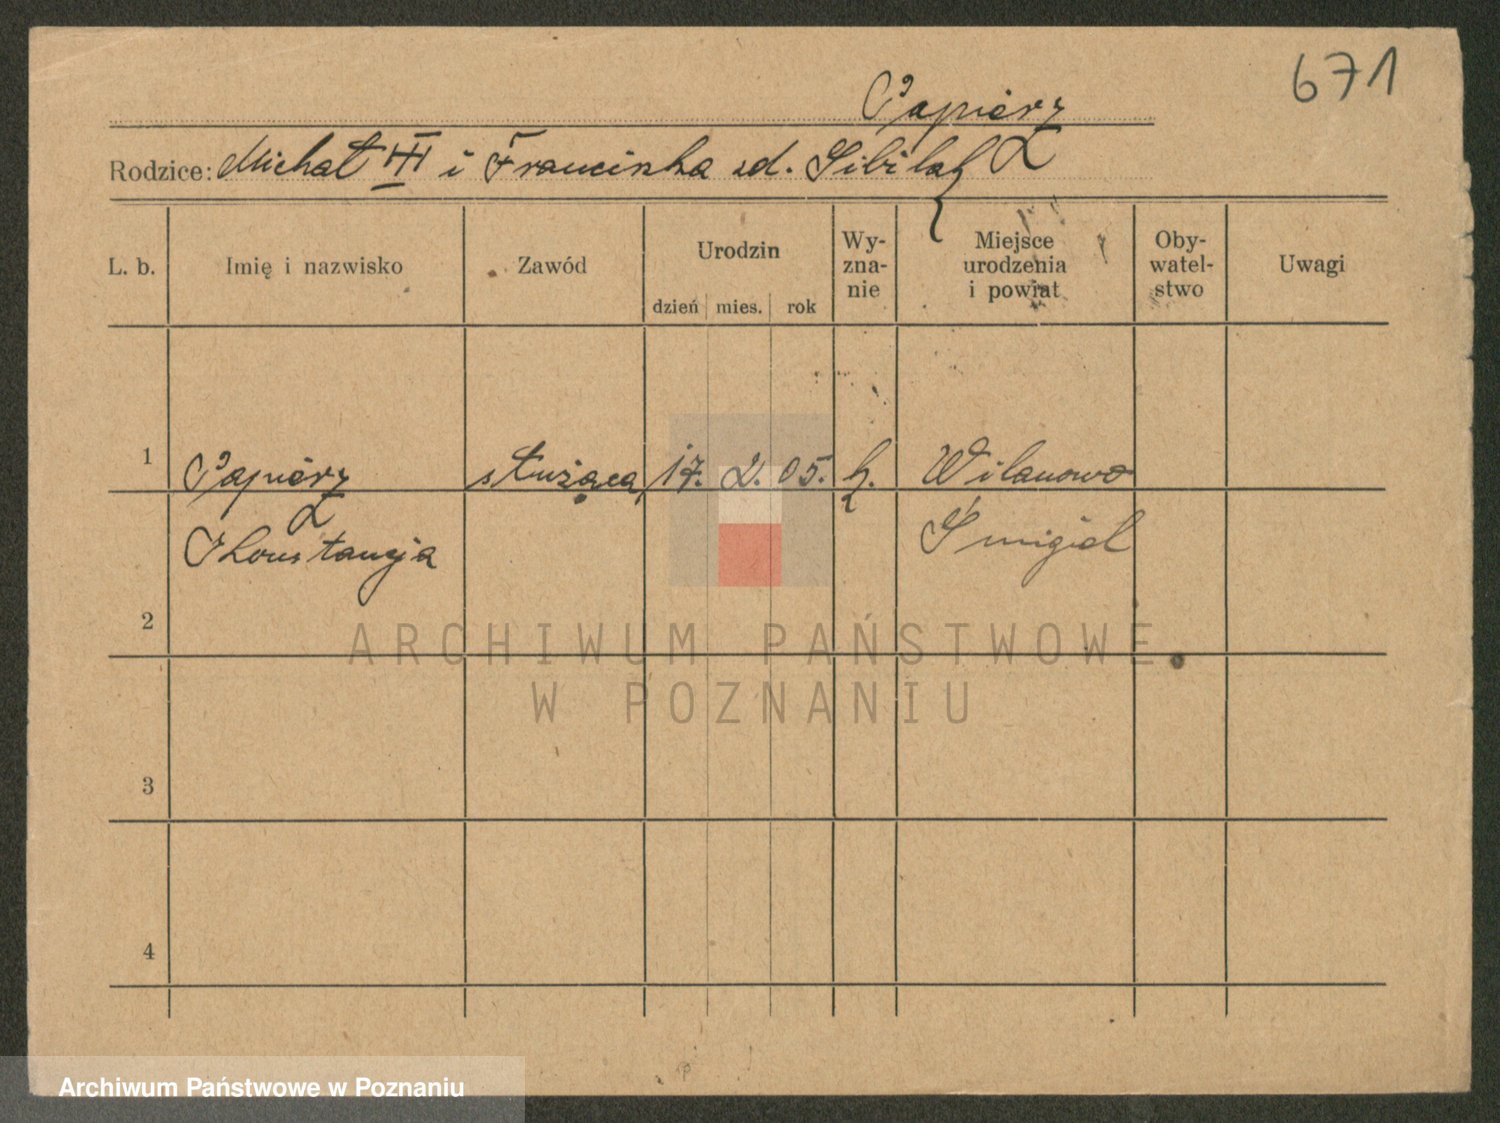 671
Papierz
Rodzice: Michał III i Franciszka zd. Sibilak
L. b. Imię i nazwisko Zawód Urodzin dzień mies. rok Wy- zna- nie Miejsce urodzenia i powiat Oby- watel- stwo Uwagi
1 Papierz służąca 17. 2. 05. k. Wilanowo
Konstancja Śmigiel
2
ARCHIWUM PAŃSTWOWE
W POZNANIU
3
4
Archiwum Państwowe w Poznaniu